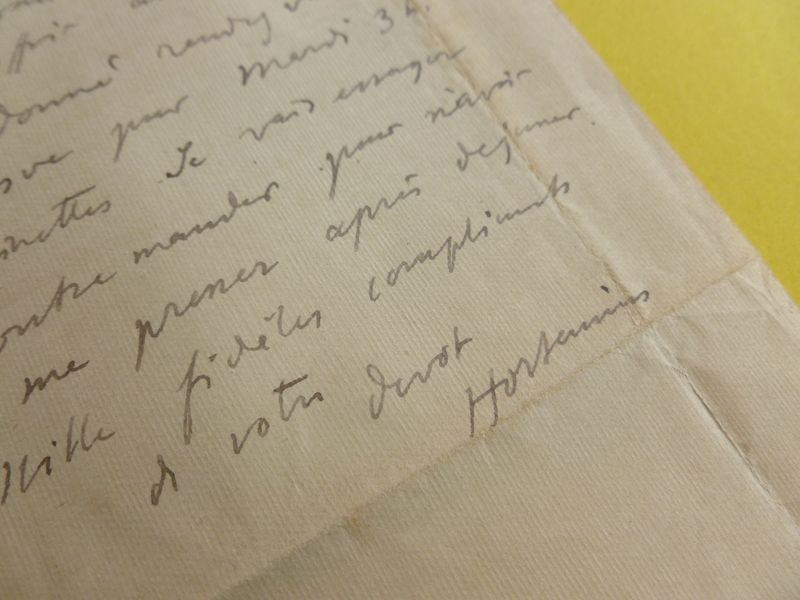 donné rendez
pour mardi 3 h.
Je vais essayer
mander pour n'avoir
me presser après dejeuner.
Mille fidèles compliments
de votre devot
Hortensius